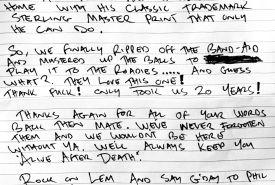 HOME WITH HIS CLASSIC TRADEMARK
STERLING MASTER PRINT THAT ONLY
HE CAN DO.
SO, WE FINALLY RIPPED OFF THE BAND-AID
AND MUSTERED UP THE BALLS TO
PLAY IT TO THE ROADIES..... AND GUESS
WHAT?. THEM LOVE THIS ONE!
THANK FUCK! ONLY TOOK US 20 YEARS!
THANKS AGAIN FOR ALL OF YOUR WORDS
BACK THEN MATE. WE'VE NEVER FORGOTTEN
THEM AND WE WOULDN'T BE HERE
WITHOUT YA. WE'LL ALWAYS KEEP YOU
'ALIVE AFTER DEATH'.
ROCK ON LEM AND SAY G'DAY TO PHIL